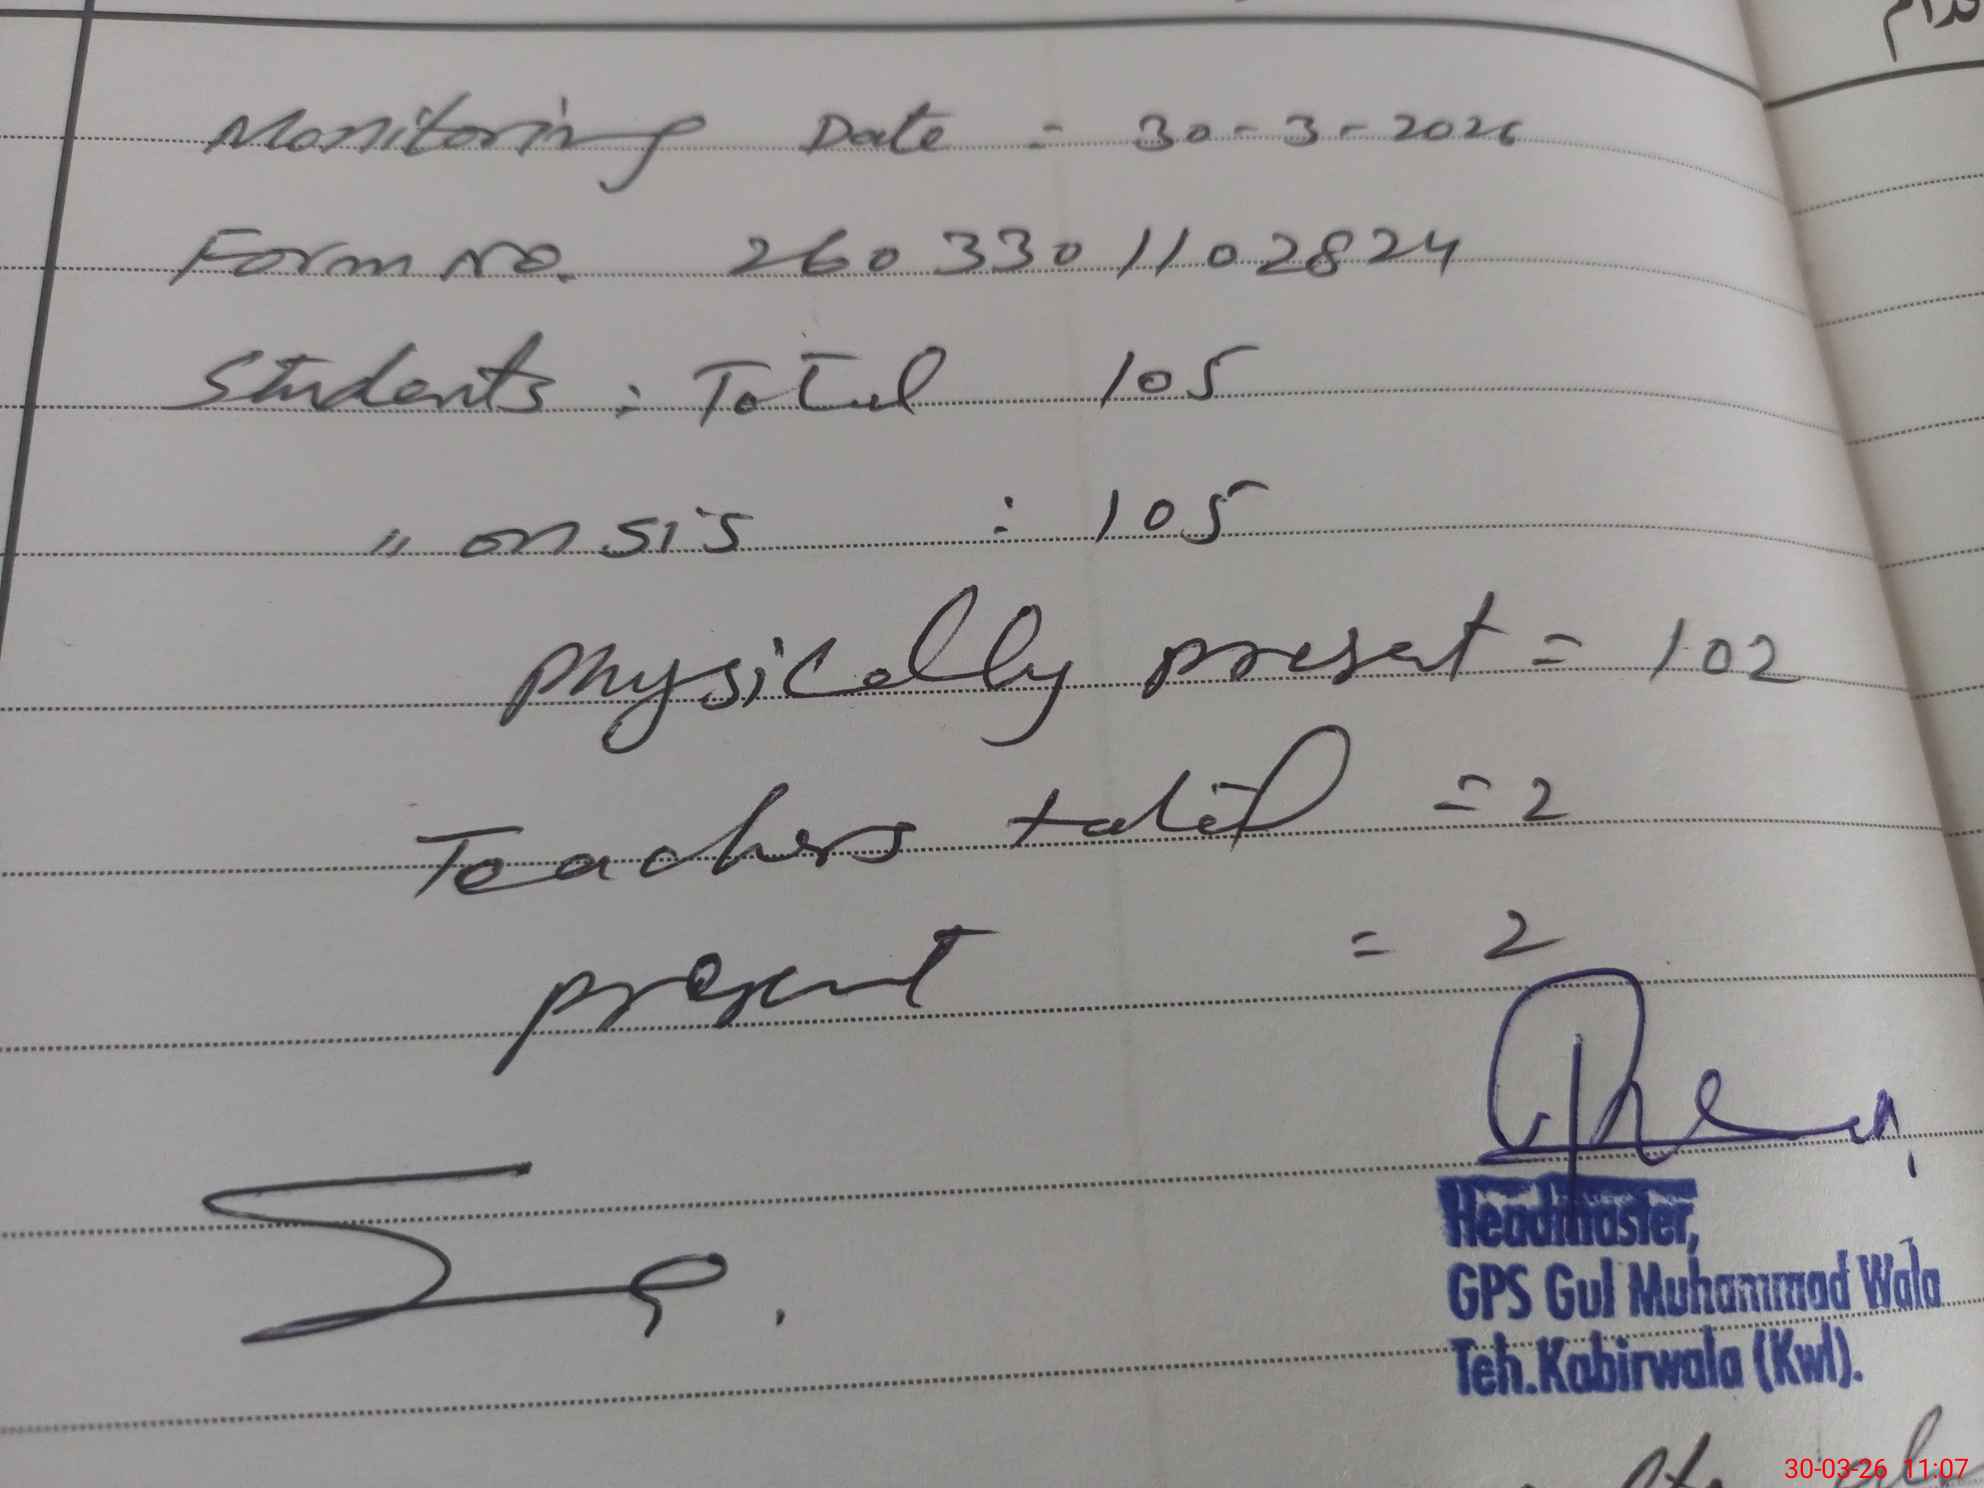 Monitoring Date = 30-3-2026
Form No. 2603301102824
Students : Total 105
" on SIS : 105
Physically present = 102
Teachers total = 2
present = 2
Headmaster,
GPS Gul Muhammad Wala
Teh.Kabirwala (Kwl).
30-03-26 11:07